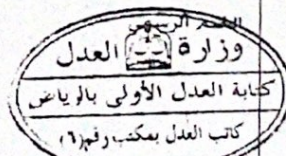 الختم الرسمي
وزارة العدل
كتابة العدل الأولى بالرياض
كاتب العدل بمكتب رقم (٦)